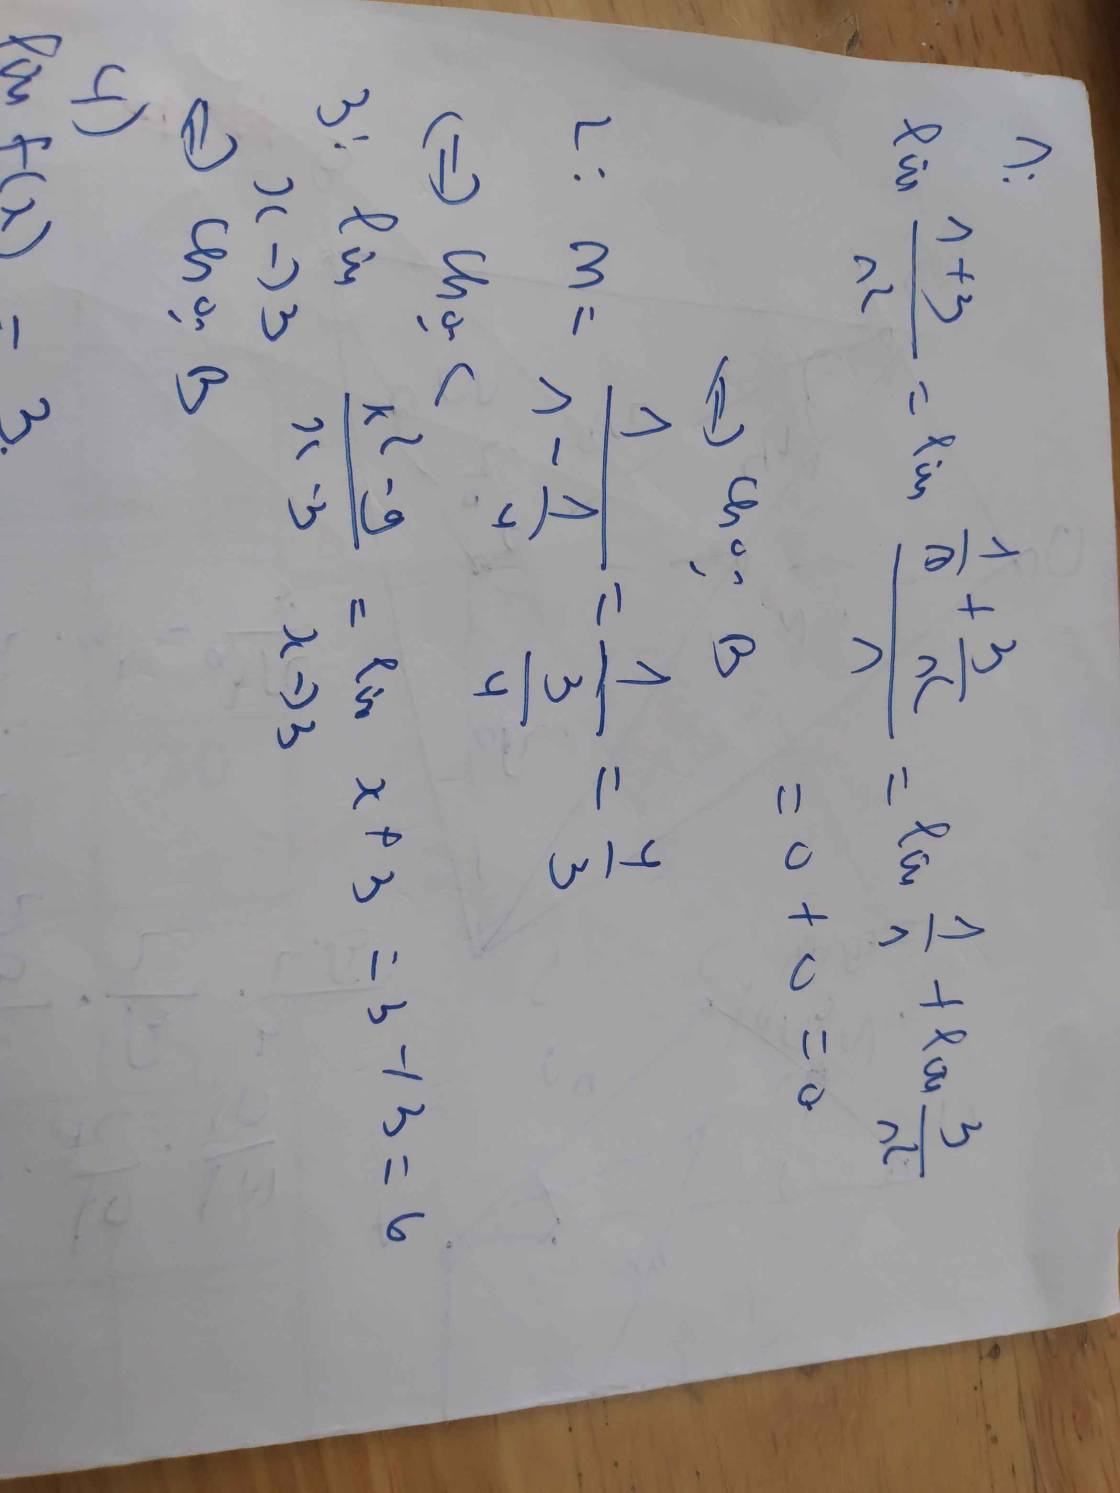 1:
lim n+3/n² = lim (1/n + 3/n²)/1 = lim 1/n + lim 3/n²
= 0 + 0 = 0
⇒ Chọn B
2: M = 1/(1 - 1/4) = 1/(3/4) = 4/3
⇒ Chọn C
3: lim x→3 x² - 9/x - 3 = lim x→3 x + 3 = 3 + 3 = 6
⇒ Chọn B
4)
lim f(x) = 3